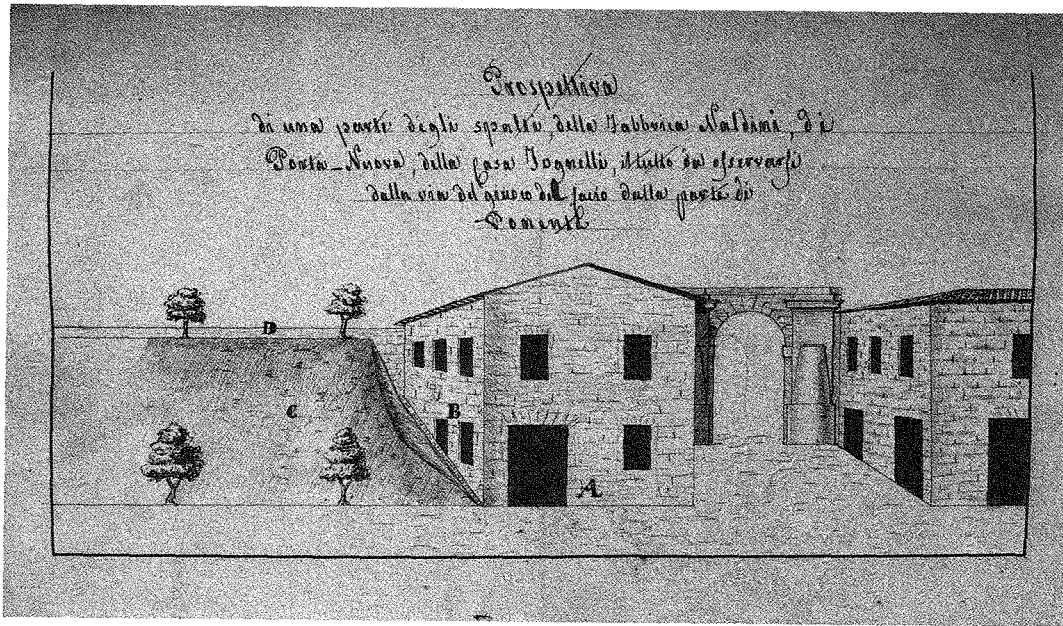 Prospettiva
di una parte degli spalti, della Fabbrica Naldini, di
Porta-Nuova, della Casa Tognelli, il tutto da osservarsi
dalla via del giuoco del dalla parte di
Ponente
D
C
B
A